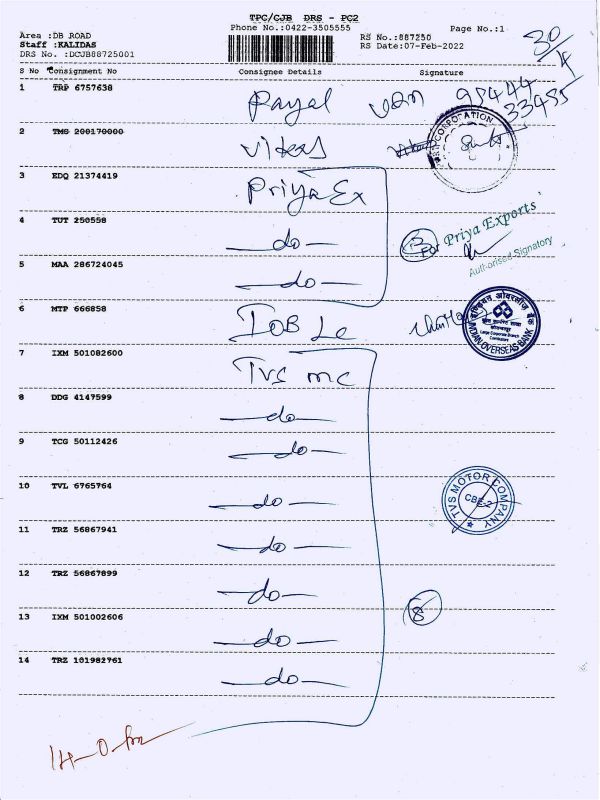 TPC/CJB DRS - PC2
Phone No.:0422-3505555
Page No.:1
Area :DB ROAD
RS No.:887250
Staff :KALIDAS
RS Date:07-Feb-2022
DRS No. :DCJB88725001
30/4
S No Consignment No Consignee Details Signature
1 TRP 6757638 Payal 95444
33455
2 TMS 200170000 Vikas
CORPORATION
3 EDQ 21374419 Priya Ex
4 TUT 250558 —do— 3 For Priya Exports
Authorised Signatory
5 MAA 286724045 —do—
6 MTP 666858 IOB Lc
इण्डियन ओवरसीज़ बैंक
INDIAN OVERSEAS BANK
7 IXM 501082600 TVS mc
8 DDG 4147599 —do—
9 TCG 50112426 —do—
10 TVL 6765764 —do—
TVS MOTOR COMPANY
CBE-2
11 TRZ 56867941 —do—
12 TRZ 56867899 —do—
8
13 IXM 501002606 —do—
14 TRZ 101982761 —do—